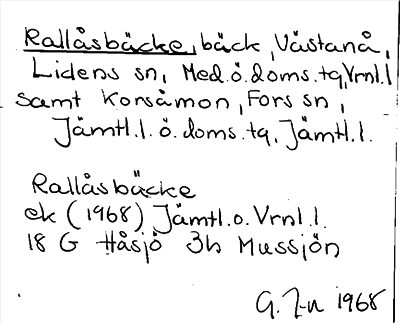 Rallåsbäcke, bäck, Västanå,
Lidens sn, Med.ö.doms.tg, Vrnl.l
samt Korsåmon, Fors sn,
Jämtl.l.ö.doms.tg, Jämtl.l.
Rallåsbäcke
ek (1968) Jämtl.o.Vrnl.l.
18 G Håsjö 3h Mussjön
G. J-n 1968